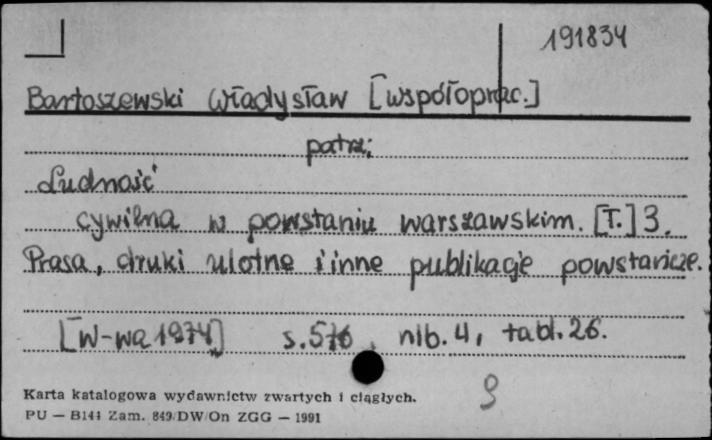 191834
Bartoszewski Władysław [współoprac.]
patrz:
Ludność
cywilna w powstaniu warszawskim. [T.] 3.
Prasa, druki ulotne i inne publikacje powstańcze.
[W-wa 1974] s. nlb. 4, tabl. 26.
Karta katalogowa wydawnictw zwartych i ciągłych.
PU — B144 Zam. 849/DW/On ZGG — 1991